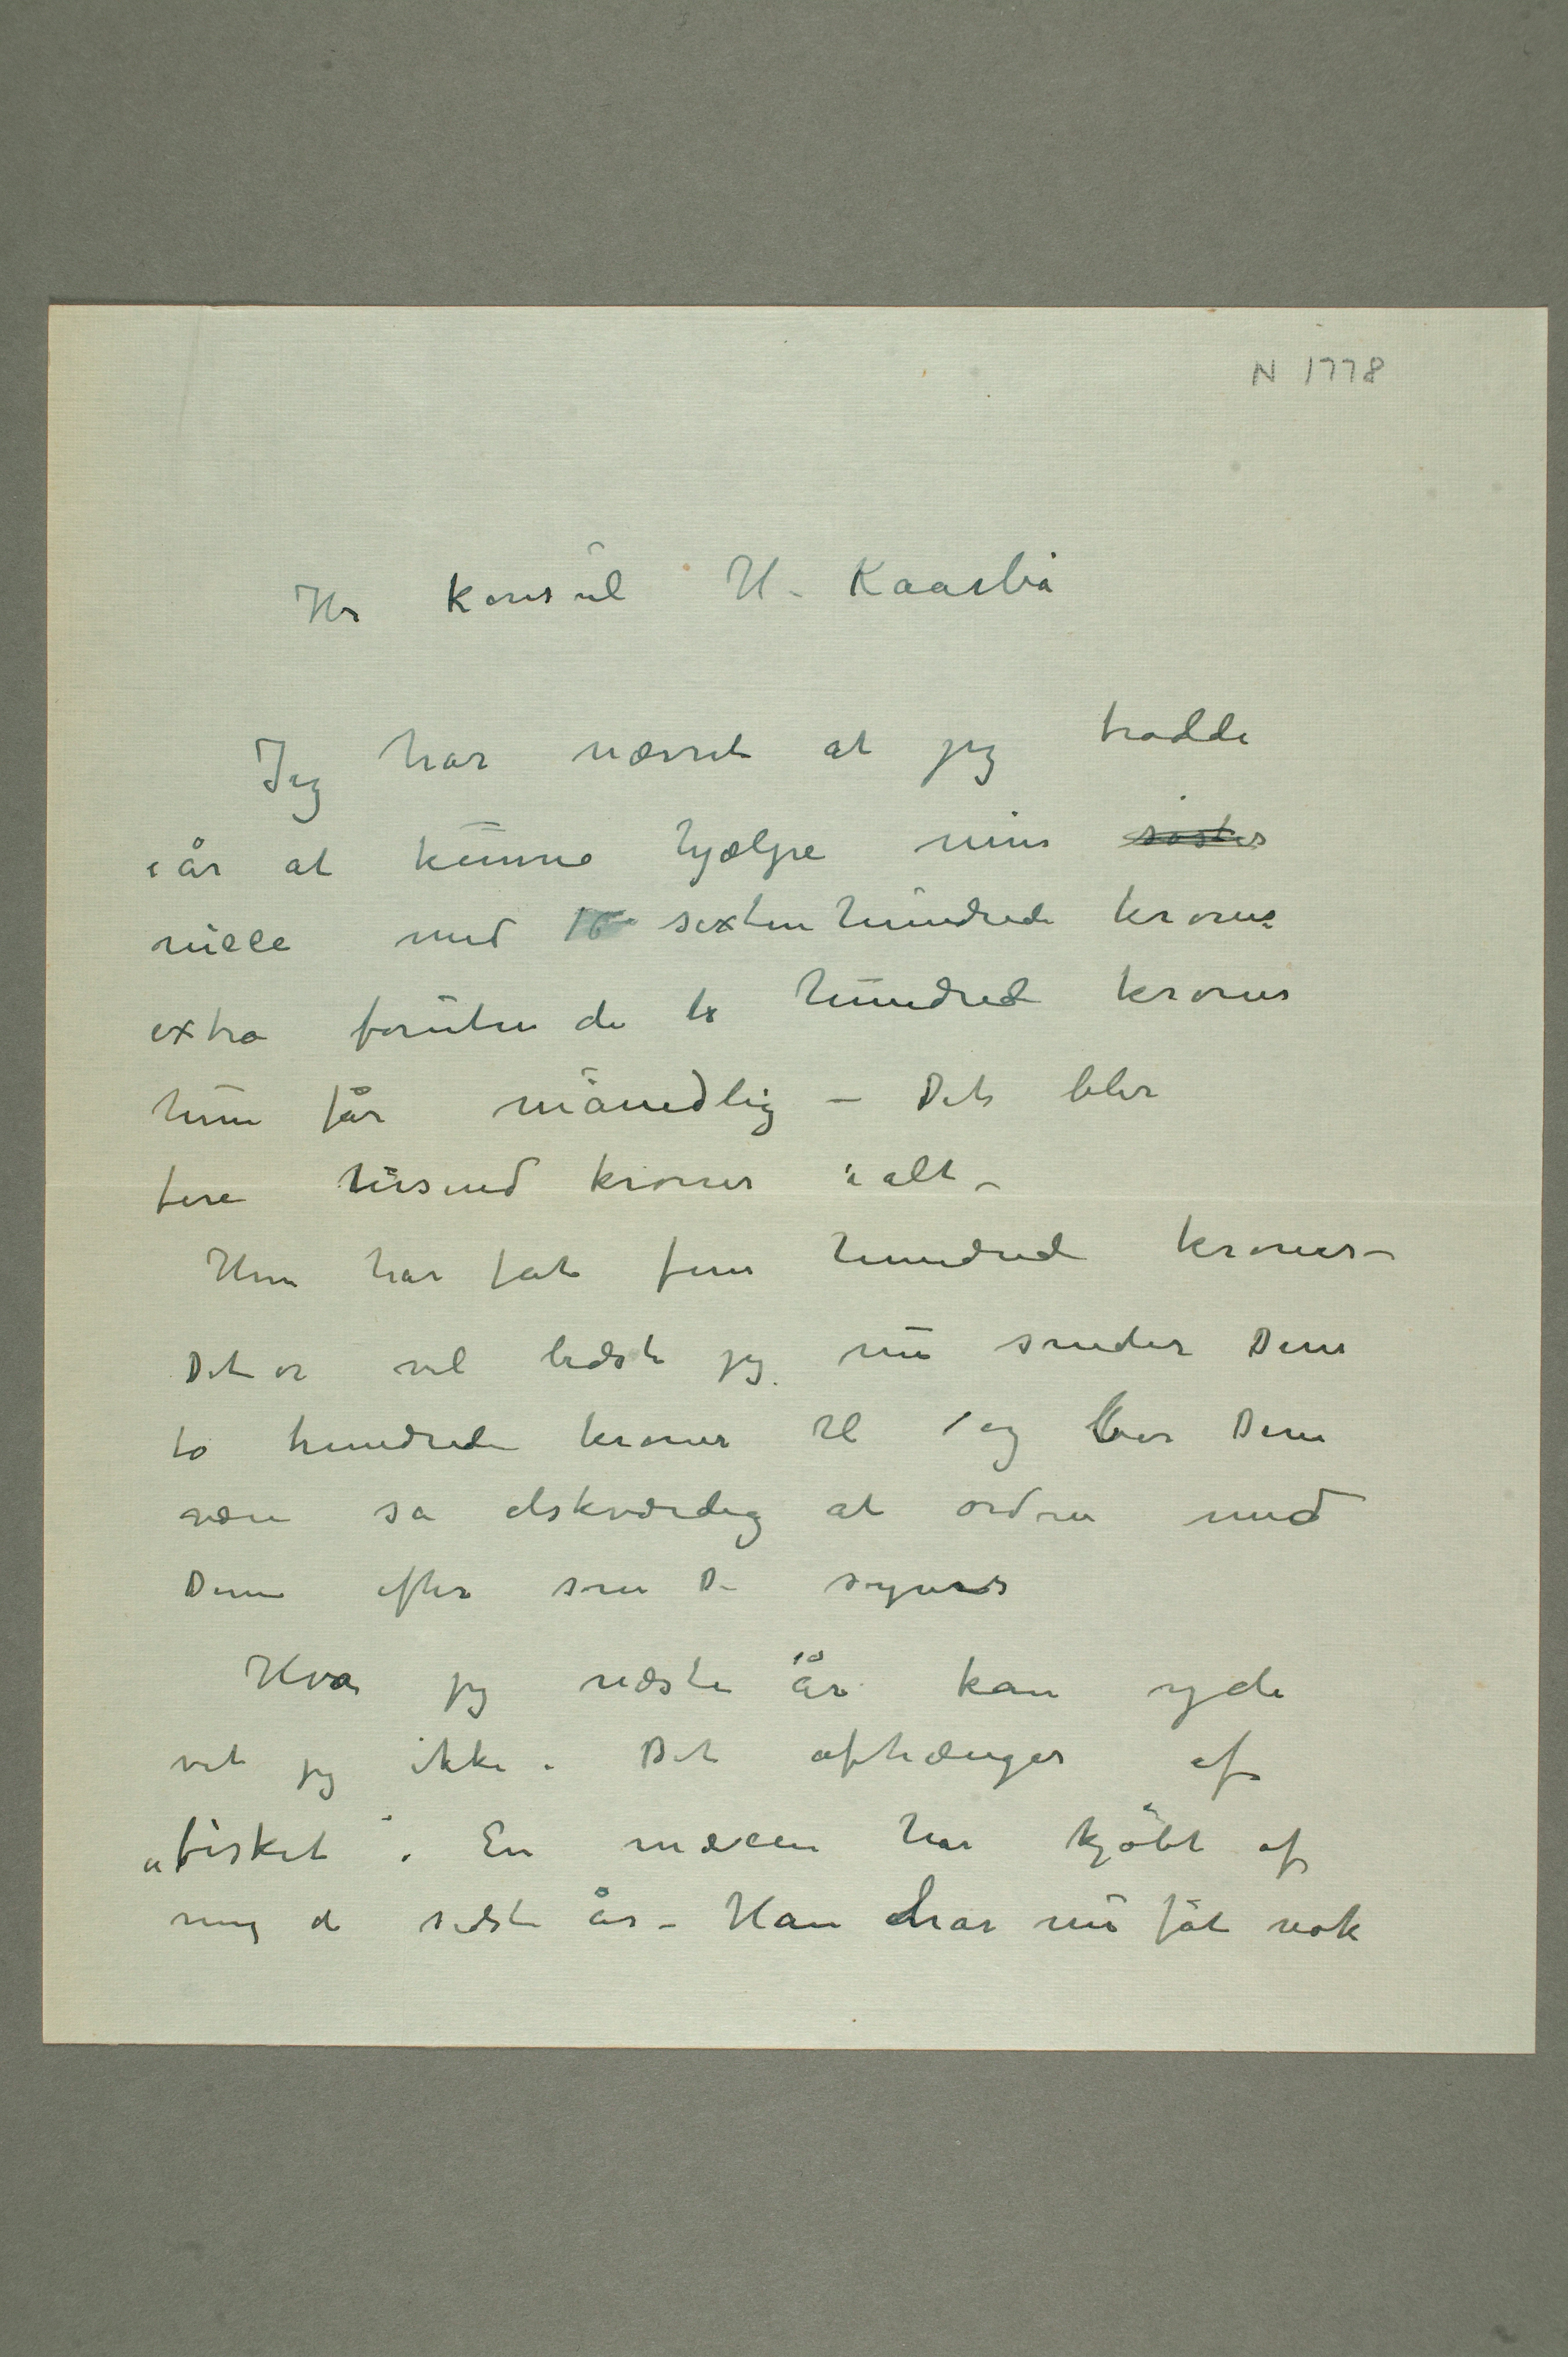 N 1778
Hr Konsul H. Kaarbø
Jeg har nævnt at jeg trodde
iår at kunne hjælpe min søster
niece med 16 sexten hundrede kroner
extra foruten de to hundrede kroner
hun får månedlig – Det blir
fire tusend kroner ialt –
Hun har fåt fem hundrede kroner –
Det er vel bedst jeg nu sender Dem
to hundrede kroner til og ber Dem
være så elskværdig at ordne med
Dem efter som De synes
Hva jeg næste år kan yde
vet jeg ikke. Det afhænger af
„fisket“. En mæcen har kjøbt af
mig de sidste år – Han har nu fåt nok